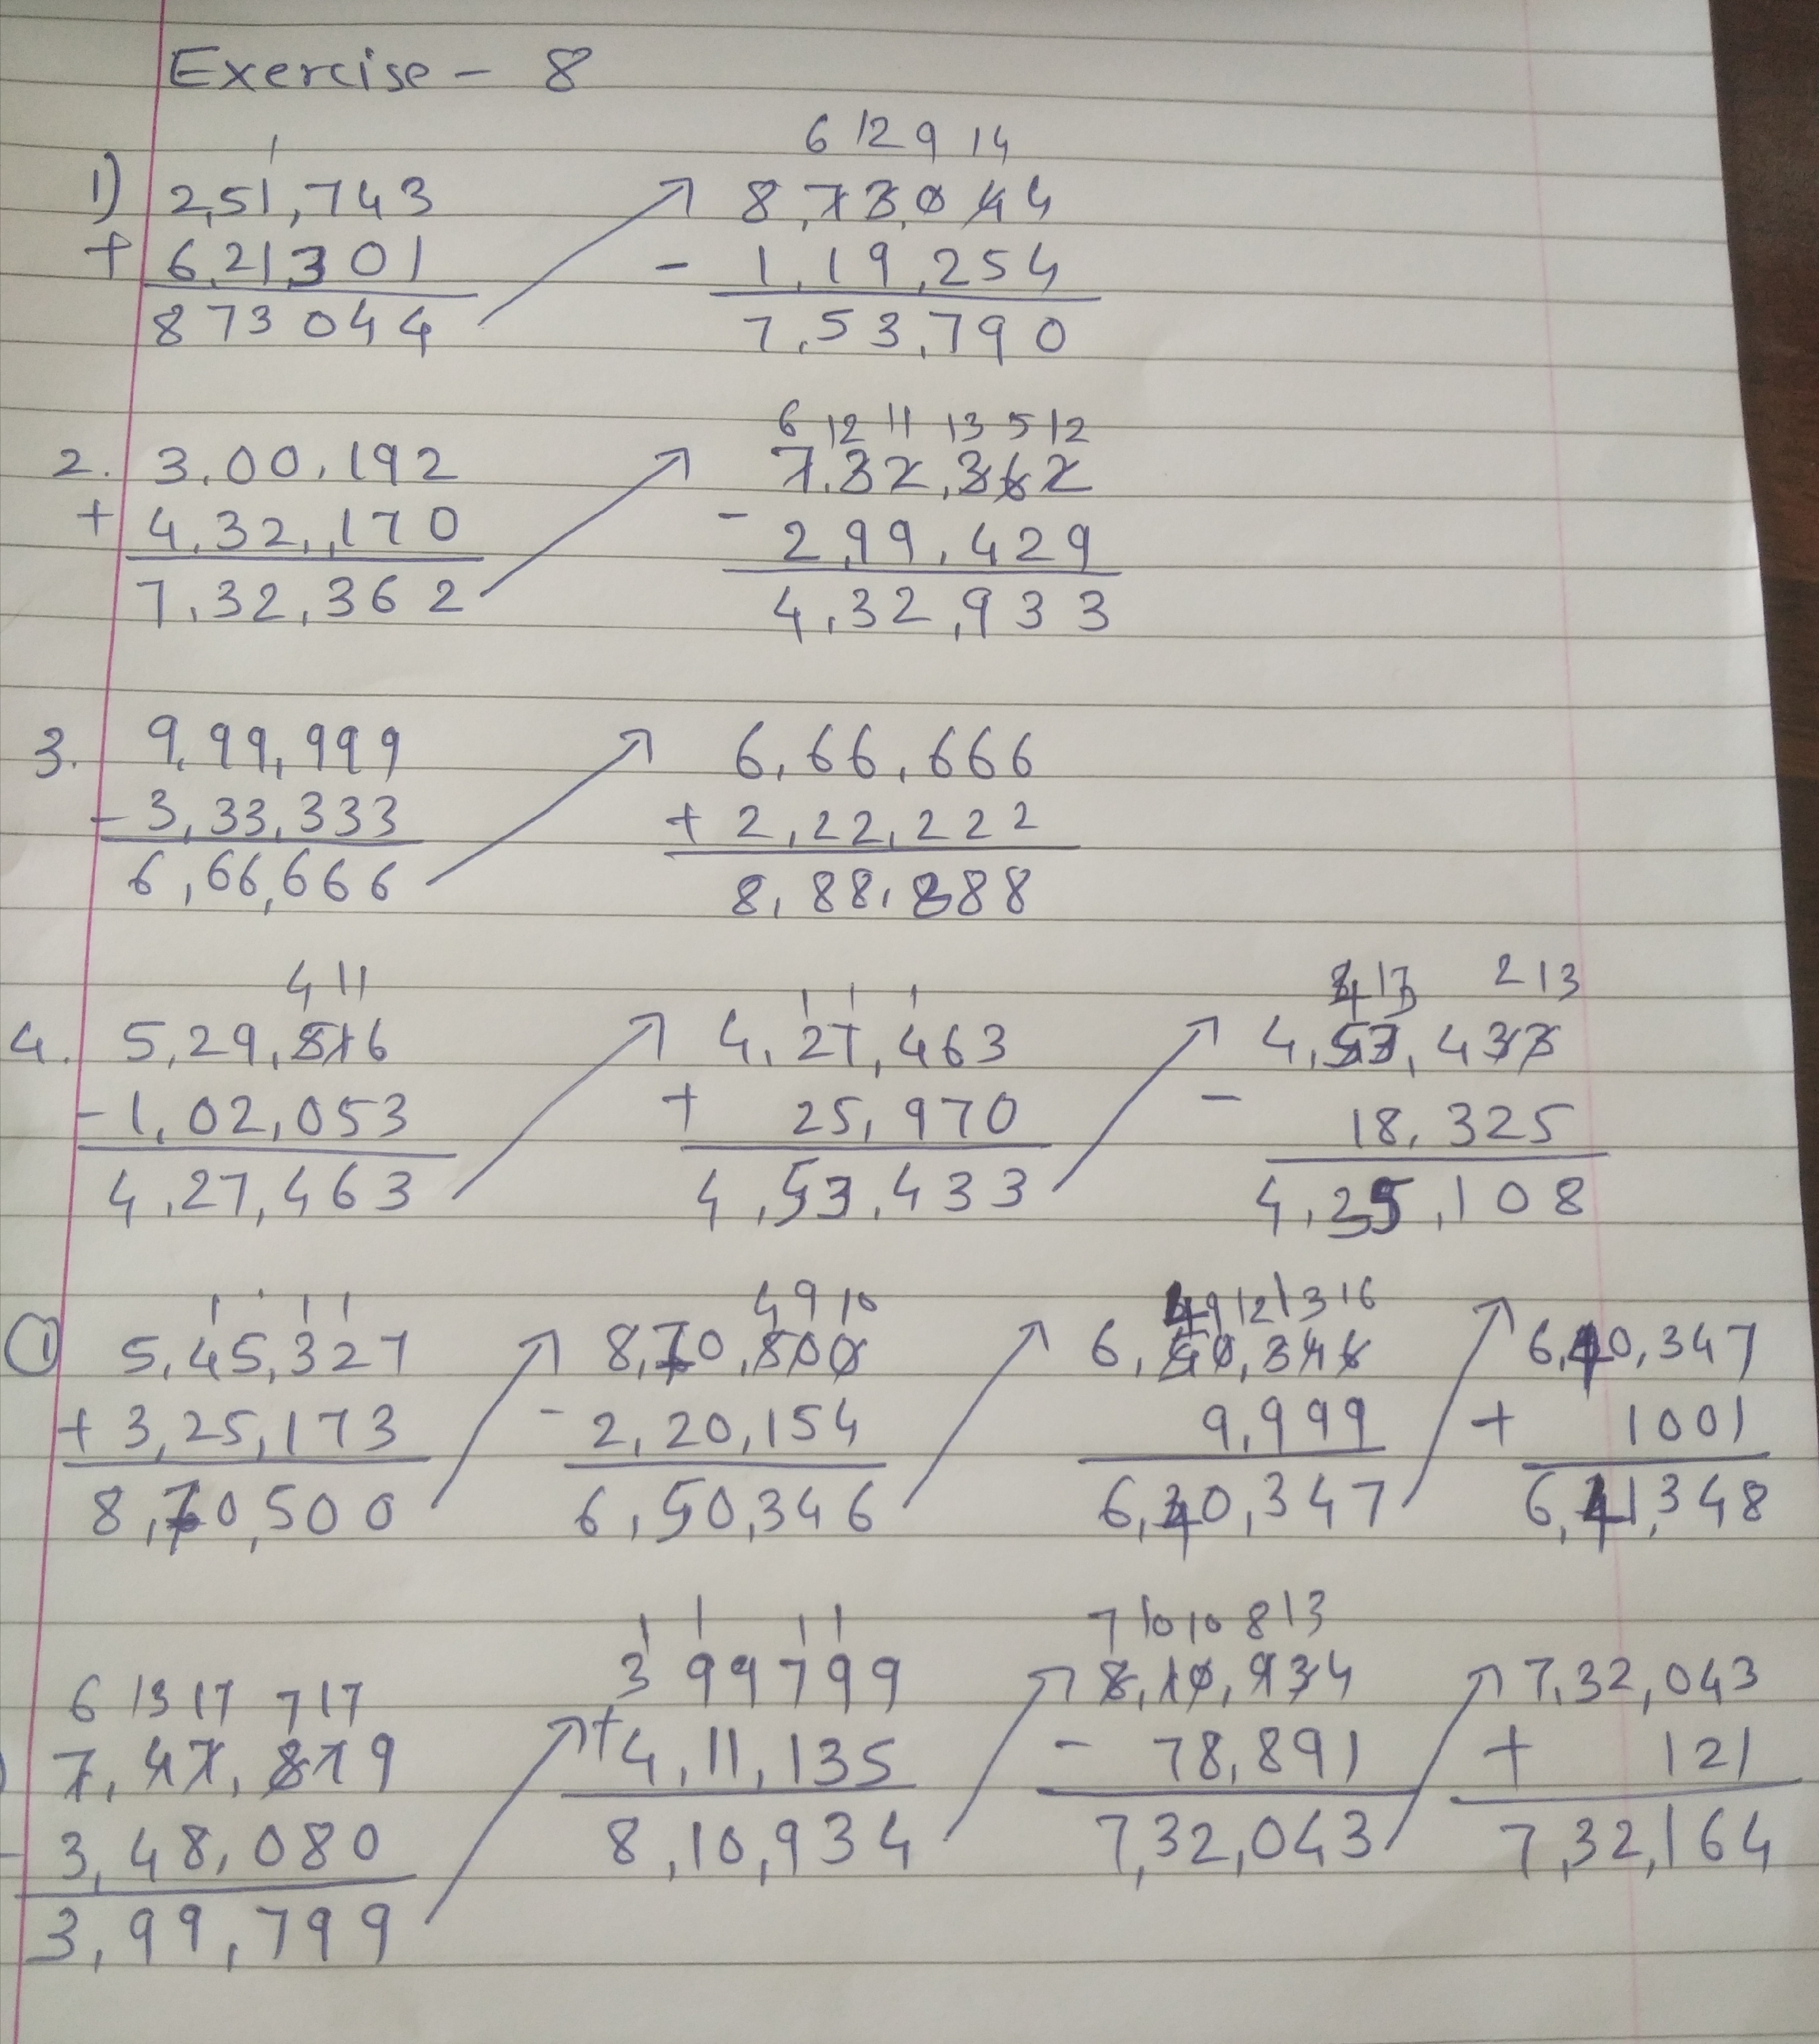 Exercise - 8
1 6 12 9 14
1) 2,51,743 ↗ 8,73,044
+ 6,21,301 - 1,19,254
873044 7,53,790
6 12 11 13 5 12
2. 3,00,192 ↗ 7,32,362
+ 4,32,170 - 2,99,429
7,32,362 4,32,933
3. 9,99,999 ↗ 6,66,666
- 3,33,333 + 2,22,222
6,66,666 8,88,888
4 11 1 1 1 4 13 2 13
4. 5,29,516 ↗ 4,27,463 ↗ 4,53,433
- 1,02,053 + 25,970 - 18,325
4,27,463 4,53,433 4,35,108
1 1 1 4 9 10 4 9 12 13 16
1 5,45,327 ↗ 8,70,500 ↗ 6,50,346 ↗ 6,40,347
+ 3,25,173 - 2,20,154 9,999 + 1001
8,70,500 6,50,346 6,40,347 6,41,348
6 13 17 7 17 1 1 1 1 7 10 10 8 13
7,47,879 ↗ 399799 ↗ 8,10,934 ↗ 7,32,043
- 3,48,080 + 4,11,135 - 78,891 + 121
3,99,799 8,10,934 7,32,043 7,32,164